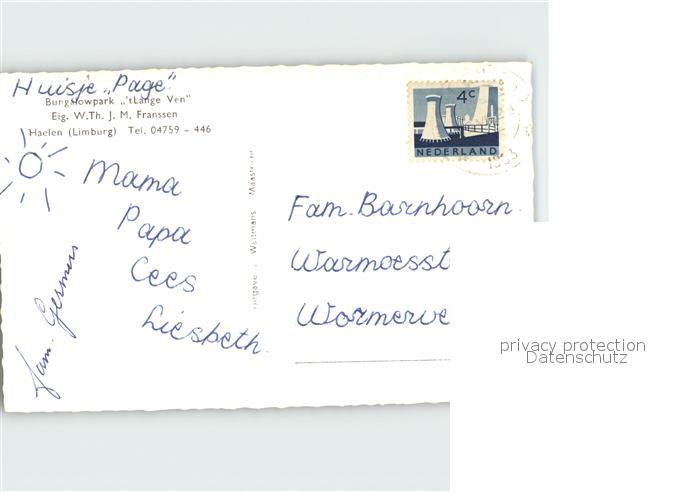 Huisje „Page"
Bungalowpark „'tLange Ven"
Eig. W.Th. J. M. Franssen
Haelen (Limburg) Tel. 04759 – 446
4c
NEDERLAND
Mama
Papa
Cees
Liesbeth.
Uitgave: Weltmans Maastricht
Fam. Barnhoorn.
Warmoesst
Wormerve
privacy protection
Datenschutz